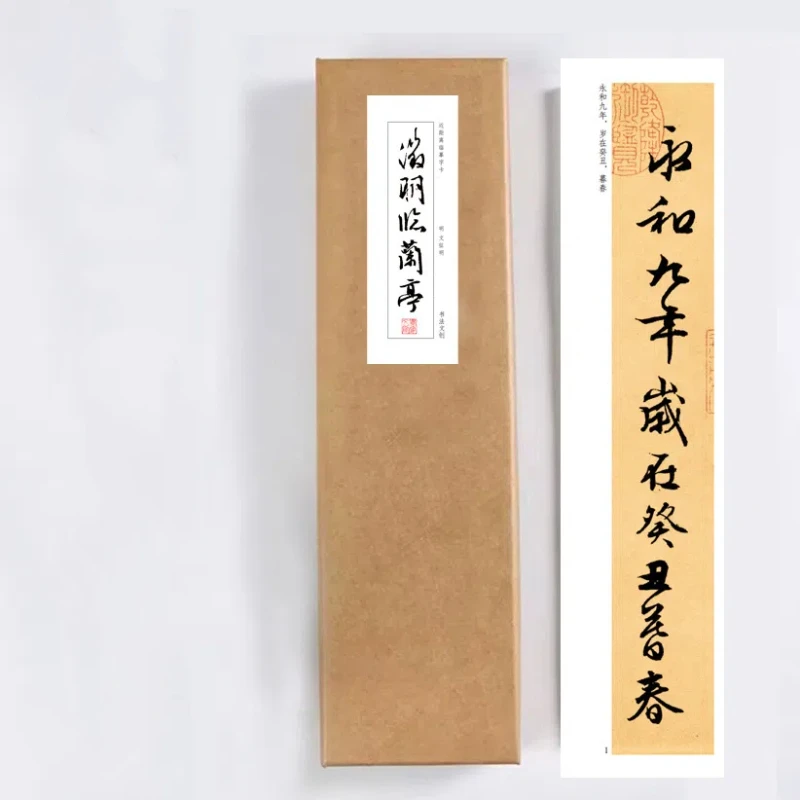 近距离临摹字卡
明 文徵明
书法文创
徵明临蘭亭
永和九年歲在癸丑暮春
永和九年，岁在癸丑，暮春
1